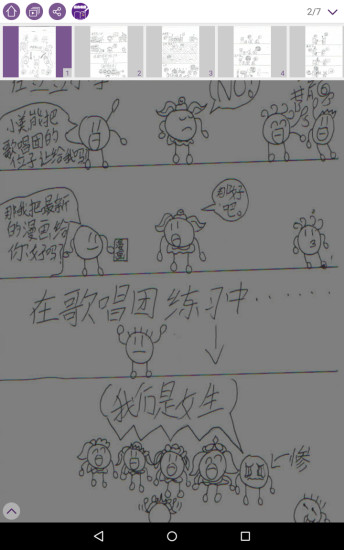 2/7
1
2
3
4
NO!
小美能把
歌唱团的
位子让给我吗
那我把最新
的漫画给
你好吗?
漫画
那好
吧。
3
在歌唱团练习中······
(我后是女生
惨